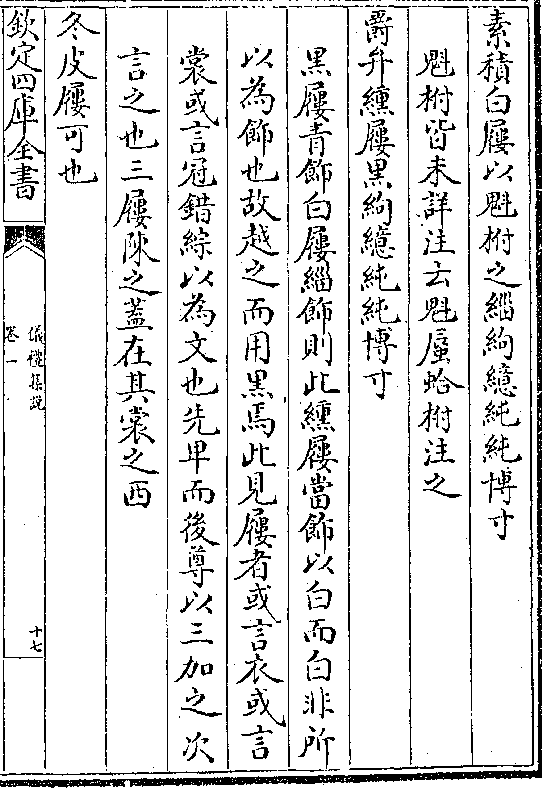 素積白屨以魁柎之緇絇繶純純博寸
魁柎皆未詳注云魁蜃蛤柎注之
爵弁纁屨黒絇繶純純博寸
黒屨青飾白屨緇飾則此纁屨當飾以白而白非所
以為飾也故越之而用黒焉此見屨者或言衣或言
裳或言冠錯綜以為文也先卑而後尊以三加之次
言之也三屨陳之蓋在其裳之西
冬皮屨可也
欽定四庫全書
儀禮集説
卷一
十七